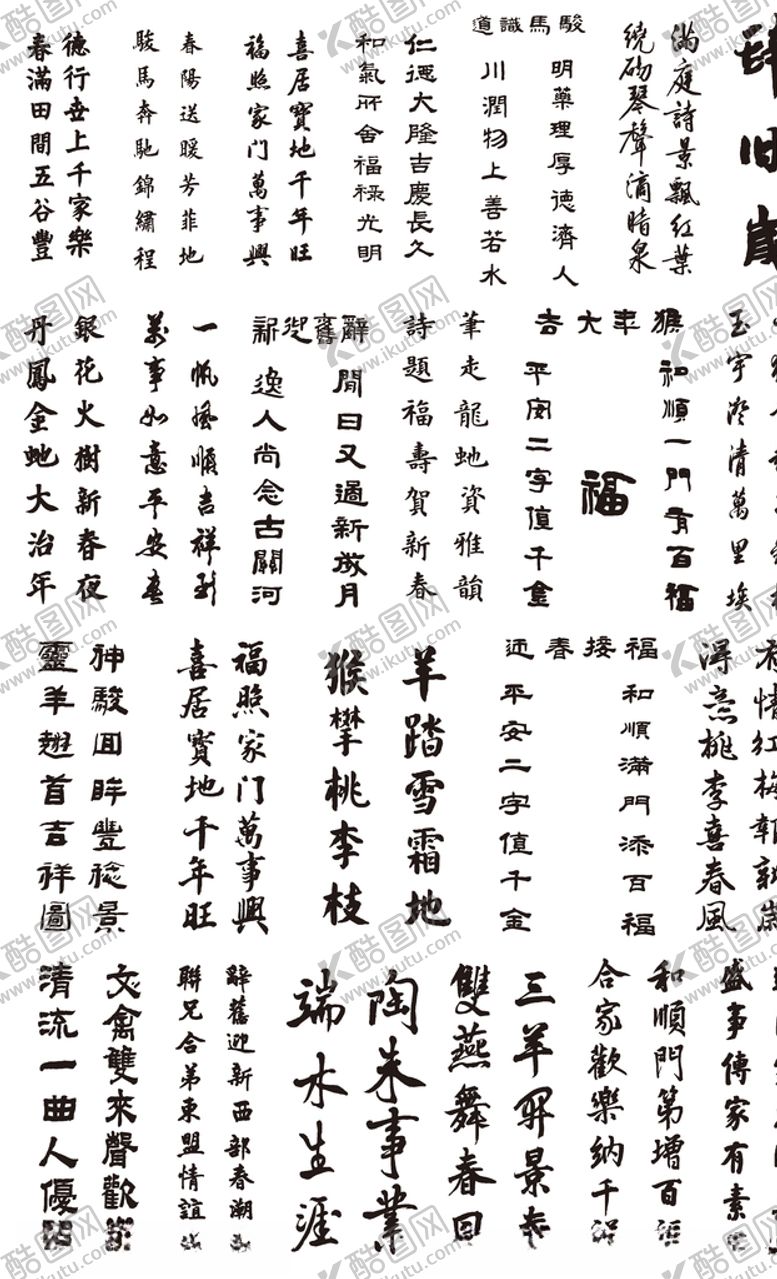 德行世上千家樂
春滿田間五谷豐
春陽送暖芳菲地
駿馬奔馳錦繡程
喜居寶地千年旺
福照家门萬事興
仁德大隆吉慶長久
和氣所舍福祿光明
駿馬識道
明藥理厚德濟人
川潤物上善若水
滿庭詩景飄紅葉
繞砌琴聲滴暗泉
舊歲
銀花火樹新春夜
丹鳳金虵大治年
一帆風順吉祥到
萬事如意平安春
辭舊迎新
閒日又過新歲月
逸人尚念古關河
筆走龍虵資雅韻
詩題福壽賀新春
猴年大吉
和順一門有百福
平安二字值千金
福
玉宇澄清萬里埃
神駿回眸豐稔景
靈羊翹首吉祥圖
福照家门萬事興
喜居寶地千年旺
羊踏雪霜地
猴攀桃李枝
福接春迎
和順滿門添百福
平安二字值千金
得意桃李喜春風
文禽雙來聲歡
清流一曲人優
辭舊迎新西部春潮
聯兄合弟東盟情誼
陶朱事業
端木生涯
三羊開景泰
雙燕舞春回
和順門第增百福
合家歡樂納千祥
盛事傳家有素
酷图网
www.ikutu.com